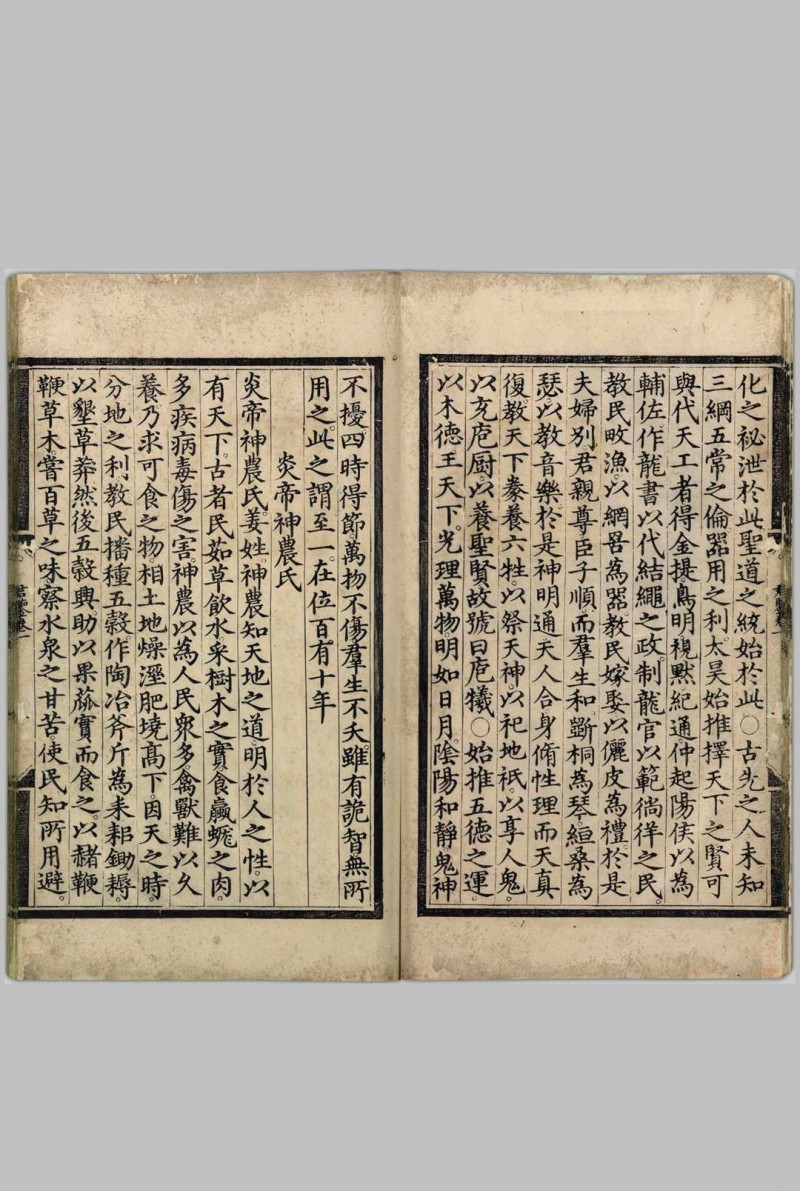 化之祕泄於此聖道之統始於此○古先之人未知
三綱五常之倫器用之利太昊始推擇天下之賢可
與代天工者得金提鳥明視默紀通仲起陽侯以為
輔佐作龍書以代結繩之政制龍官以範徜徉之民
教民畋漁以網罟為器教民嫁娶以儷皮為禮於是
夫婦別君親尊臣子順而羣生和斲桐為琴絙桑為
瑟以教音樂於是神明通天人合身脩性理而天真
復教天下豢養六牲以祭天神以祀地祇以享人鬼
以充庖厨以養聖賢故號曰庖犧○始推五德之運
以木德王天下光理萬物明如日月陰陽和靜鬼神
不擾四時得節萬物不傷羣生不夭雖有詭智無所
用之此之謂至一在位百有十年
炎帝神農氏
炎帝神農氏姜姓神農知天地之道明於人之性以
有天下古者民茹草飲水采樹木之實食蠃蠬之肉
多疾病毒傷之害神農以為人民衆多禽獸難以久
養乃求可食之物相土地燥溼肥境高下因天之時
分地之利教民播種五穀作陶冶斧斤為耒耜鋤耨
以墾草莽然後五穀興助以果蓏實而食之以赭鞭
鞭草木嘗百草之味察水泉之甘苦使民知所用避